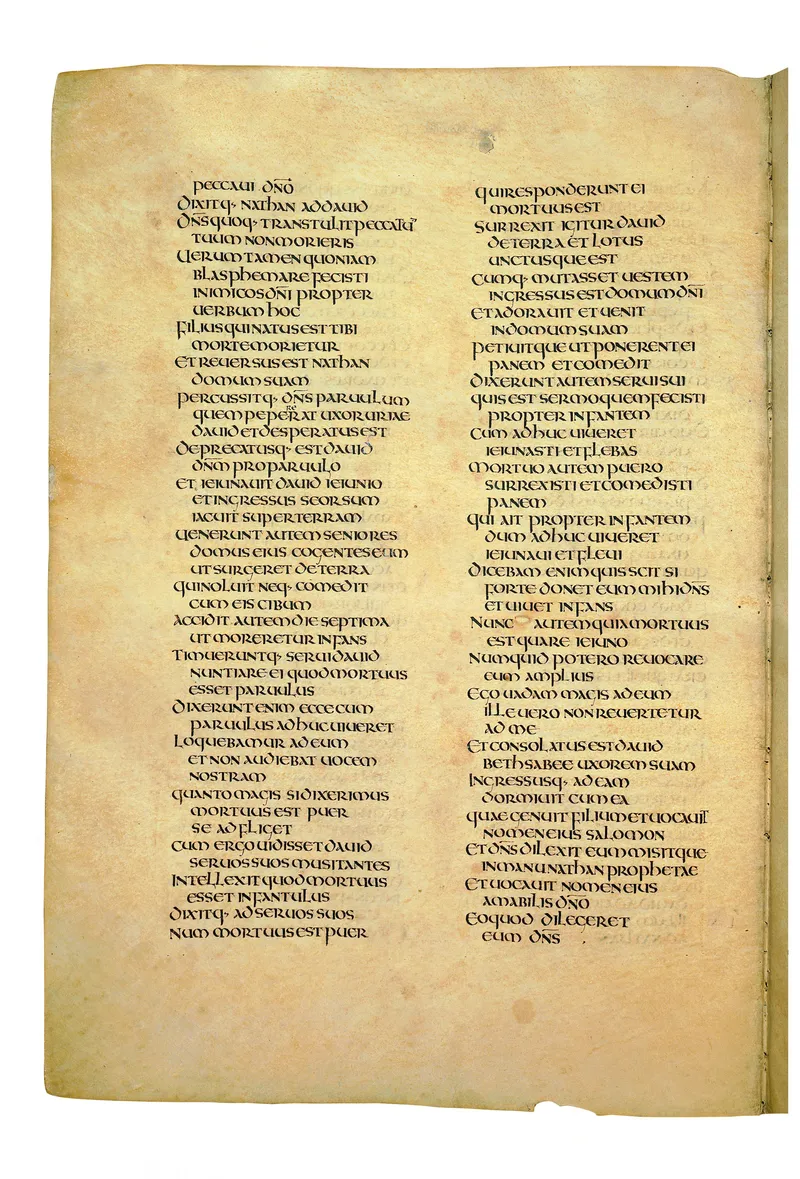 peccaui dn̄o
dixitq· nathan ad dauid
dn̄s quoq· transtulit peccatū
tuum non morieris
uerum tamen quoniam
blasphemare fecisti
inimicos dn̄i propter
uerbum hoc
filius qui natus est tibi
morte morietur
et reuersus est nathan
domum suam
percussitq· dn̄s paruulum
quem pepererat uxor uriae
dauid et desperatus est
deprecatusq· est dauid
dn̄m pro paruulo
et ieiunauit dauid ieiunio
et ingressus seorsum
iacuit super terram
uenerunt autem seniores
domus eius cogentes eum
ut surgeret de terra
qui noluit neq· comedit
cum eis cibum
accidit autem die septima
ut moreretur infans
timueruntq· serui dauid
nuntiare ei quod mortuus
esset paruulus
dixerunt enim ecce cum
paruulus adhuc uiueret
loquebamur ad eum
et non audiebat uocem
nostram
quanto magis si dixerimus
mortuus est puer
se adfliget
cum ergo uidisset dauid
seruos suos musitantes
intellexit quod mortuus
esset infantulus
dixitq· ad seruos suos
num mortuus est puer
qui responderunt ei
mortuus est
surrexit igitur dauid
de terra et lotus
unctusque est
cumq· mutasset uestem
ingressus est domum dn̄i
et adorauit et uenit
in domum suam
petiuitque ut ponerent ei
panem et comedit
dixerunt autem serui sui
quis est sermo quem fecisti
propter infantem
cum adhuc uiueret
ieiunasti et flebas
mortuo autem puero
surrexisti et comedisti
panem
qui ait propter infantem
dum adhuc uiueret
ieiunaui et fleui
dicebam enim quis scit si
forte donet eum mihi dn̄s
et uiuet infans
nunc autem quia mortuus
est quare ieiuno
numquid potero reuocare
eum amplius
ego uadam magis ad eum
ille uero non reuertetur
ad me
et consolatus est dauid
bethsabee uxorem suam
ingressusq· ad eam
dormiuit cum ea
quae genuit filium et uocauit
nomen eius salomon
et dn̄s dilexit eum misitque
in manu nathan prophetae
et uocauit nomen eius
amabilis dn̄o
eo quod diligeret
eum dn̄s